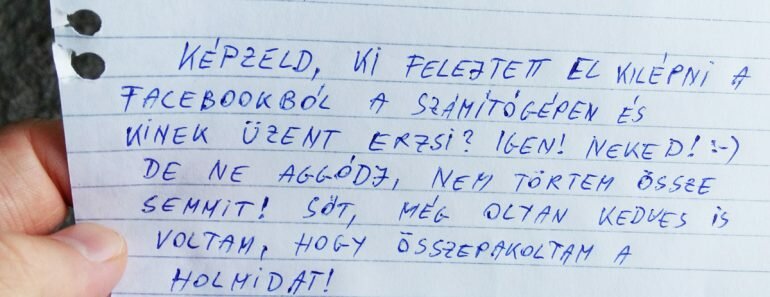 KÉPZELD, KI FELEJTETT EL KILÉPNI A
FACEBOOKBÓL A SZÁMÍTÓGÉPEN ÉS
KINEK ÜZENT ERZSI? IGEN! NEKED! :-)
DE NE AGGÓDJ, NEM TÖRTEM ÖSSZE
SEMMIT! SŐT, MÉG OLYAN KEDVES IS
VOLTAM, HOGY ÖSSZEPAKOLTAM A
HOLMIDAT!